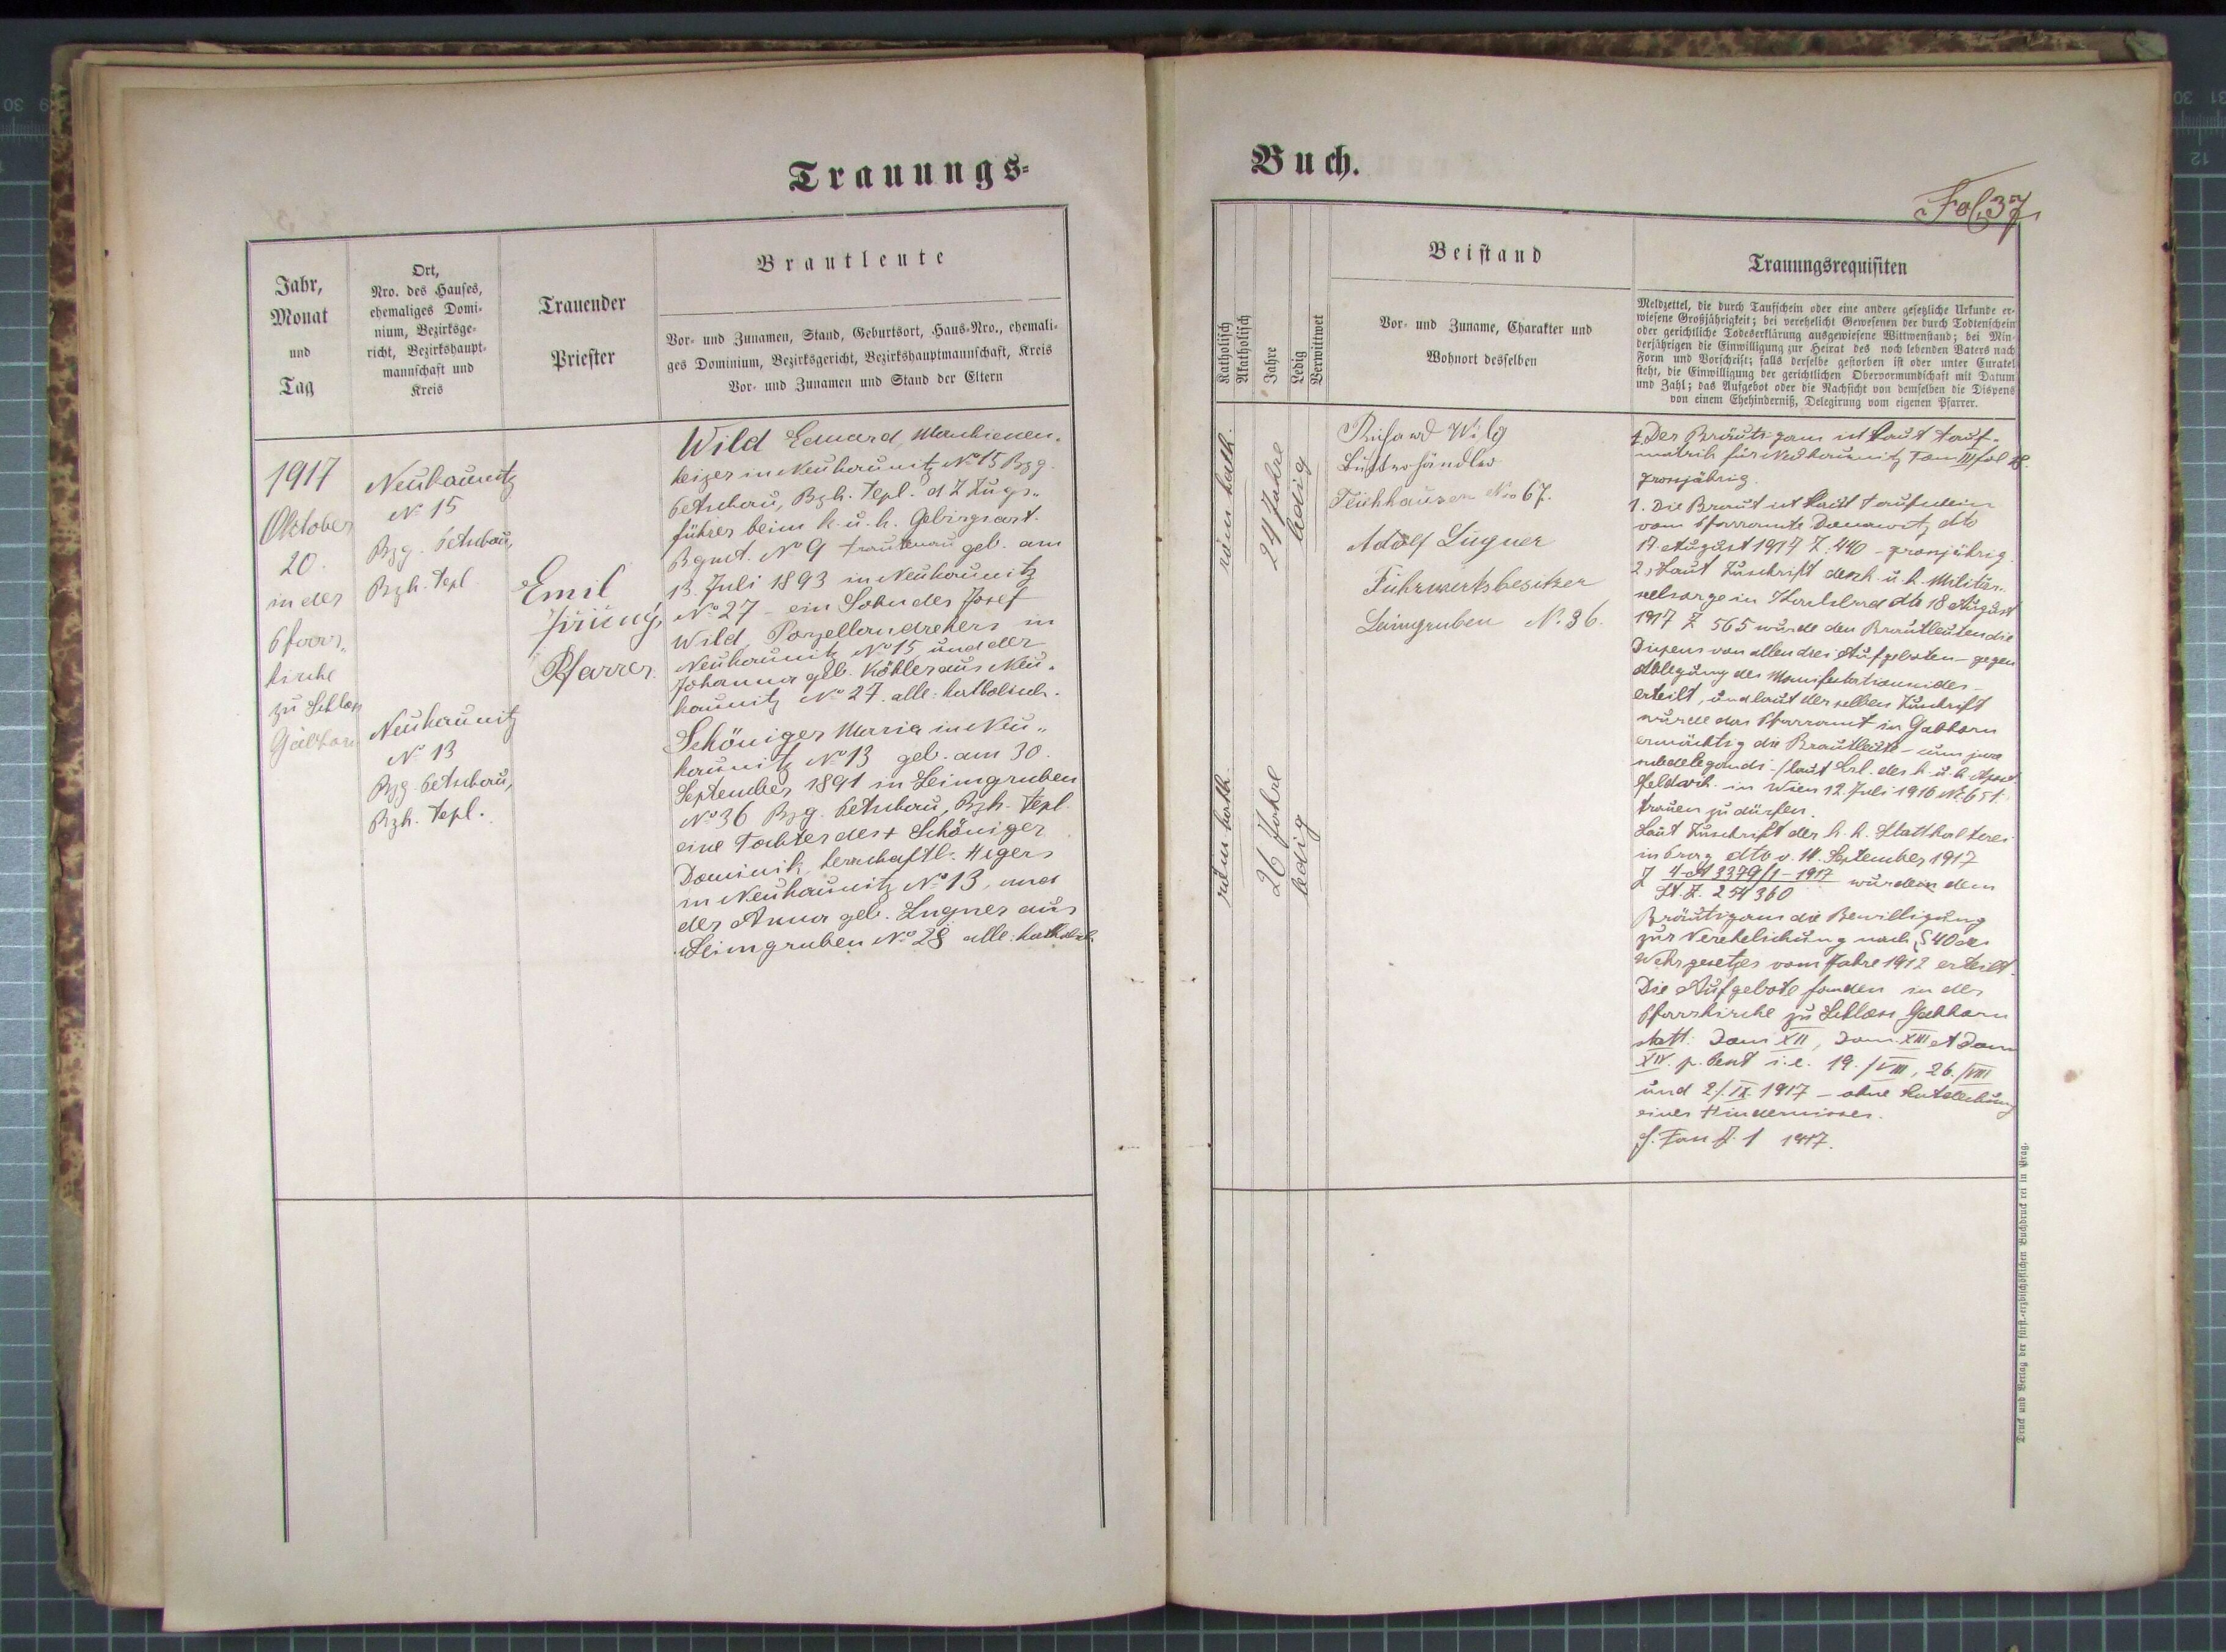 Trauungs-
Jahr,
Monat
und
Tag
Ort,
Nro. des Hauses,
ehemaliges Domi-
nium, Bezirksge-
richt, Bezirkshaupt-
mannschaft und
Kreis
Trauender
Priester
Brautleute
Vor- und Zunamen, Stand, Geburtsort, Haus-Nro., ehemali-
ges Dominium, Bezirksgericht, Bezirkshauptmannschaft, Kreis
Vor- und Zunamen und Stand der Eltern
1917
Oktober
20.
in der
Pfarr-
kirche
zu Schloss
Gabhorn
Neukaunitz
No 15
Bzg. Petschau,
Bzh. Tepl
Neukaunitz
No 13
Bzg. Petschau,
Bzh. Tepl.
Emil
Pfarrer.
Wild Eduard, Maschienen-
heizer in Neukaunitz No 15 Bzg.
Petschau, Bzh. Tepl. d Z Zugs-
führer beim k. u. k. Gebirgsart.
Rgmt. No 9 Trautenau geb. am
13. Juli 1893 in Neukaunitz
No 27 - ein Sohn des Josef
Wild, Porzellandrehers in
Neukaunitz No 15 und der
Johanna geb. Köhler aus Neu-
kaunitz No 27. alle: katholisch.
Schöniger Maria in Neu-
kaunitz No 13 geb. am 30.
September 1891 in Leimgruben
No 36 Bzg. Petschau, Bzh. Tepl.
eine Tochter des + Schöniger
Dominik, herrschaftl. Hegers
in Neukaunitz No 13, und
der Anna geb. Lugner aus
Leimgruben No 28 alle: katholisch.
Buch.
Fol. 37
Katholisch
Akatholisch
Jahre
Ledig
Verwittwet
Beistand
Vor- und Zuname, Charakter und
Wohnort desselben
Trauungsrequisiten
Meldzettel, die durch Taufschein oder eine andere gesetzliche Urkunde er-
wiesene Großjährigkeit; bei verehelicht Gewesenen der durch Todtenschein
oder gerichtliche Todeserklärung ausgewiesene Wittwenstand; bei Min-
derjährigen die Einwilligung zur Heirat des noch lebenden Vaters nach
Form und Vorschrift; falls derselbe gestorben ist oder unter Curatel
steht, die Einwilligung der gerichtlichen Obervormundschaft mit Datum
und Zahl; das Aufgebot oder die Nachsicht von demselben die Dispens
von einem Ehehinderniß, Delegirung vom eigenen Pfarrer.
röm. kath.
24 Jahre
ledig
röm. kath.
26 Jahre
ledig
Richard Wilg
Butterhändler
Teichhäuser No 67.
Adolf Lugner
Fuhrwerksbesitzer
Leimgruben No. 36.
1. Der Bräutigam ist laut Tauf-
matrik für Neukaunitz Tom III fol
grossjährig.
1. Die Braut ist laut Taufschein
vom Pfarramte Donawitz dto
17. August 1917 Z. 440 - grossjährig.
2, Laut Zuschrift der k. u. k. Militär-
seelsorge in Karlsbad dto 18 August
1917 Z 565 wurde den Brautleuten die
Dispens von allen drei Aufgeboten - gegen
Ablegung des Manifestationseides -
erteilt, und laut derselben Zuschrift
wurde das Pfarramt in Gabhorn
ermächtig die Brautleute - cum jure
subdelegandi - / laut Erl. des k. u. k. Apost
Feldvik. in Wien 12. Juli 1916 No 651.
trauen zu dürfen.
Laut Zuschrift der k. k. Statthalterei
in Prag dto v. 11. September 1917
Z 4-A 3379/1 - 1917 wurden dem
St. Z. 254360
Bräutigam die Bewilligung
zur Verehelichung nach § 40 des
Wehrgesetzes vom Jahre 1912 erteilt.
Die Aufgebote fanden in der
Pfarrkirche zu Schloss Gabhorn
statt: Dom XII, Dom. XIII et Dom
XIV. p. Pent i. e. 19./VIII, 26./VIII
und 2./IX. 1917 - ohne Entdeckung
eines Hindernisses.
1 1917.
Druck und Verlag der fürst.-erzbischöflichen Buchdruckerei in Prag.